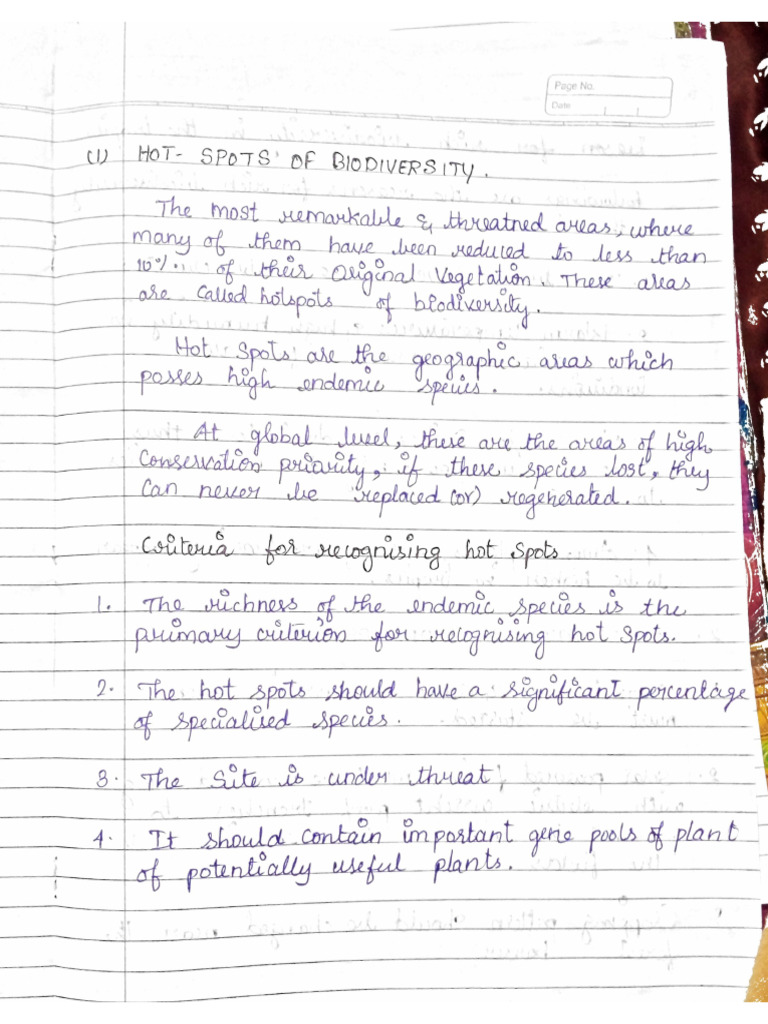 Page No.
Date
(1) HOT- SPOTS OF BIODIVERSITY.
The most remarkable & threatned areas, where
many of them have been reduced to less than
10% of their Original Vegetation. These areas
are called hotspots of biodiversity.
Hot Spots are the geographic areas which
posses high endemic species.
At global level, these are the areas of high
Conservation priarity, if these species lost, they
Can never be replaced (or) regenerated.
Criteria for recognising hot spots
1. The richness of the endemic species is the
primary criterion for recognising hot spots.
2. The hot spots should have a significant percentage
of specialised species.
3. The Site is under threat,
4. It should contain important gene pools of plant
of potentially useful plants.